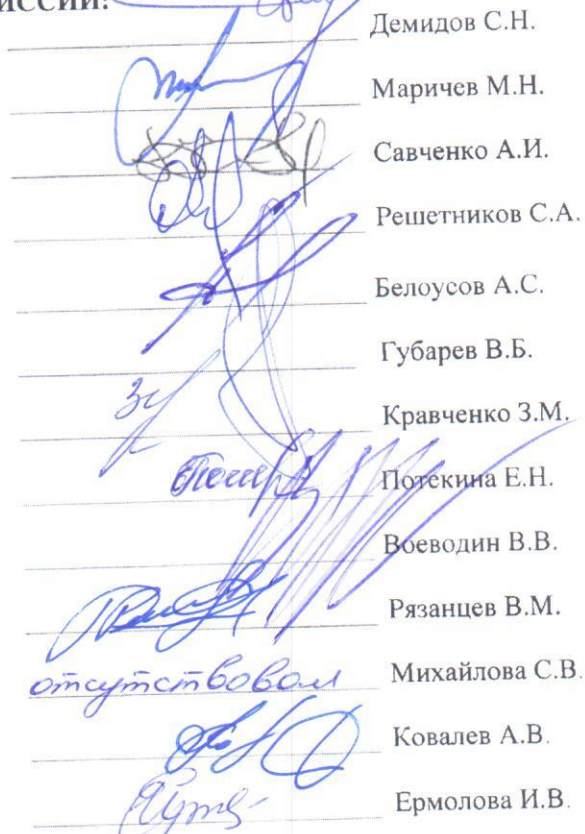 Демидов С.Н.
Маричев М.Н.
Савченко А.И.
Решетников С.А.
Белоусов А.С.
Губарев В.Б.
Кравченко З.М.
Потекина Е.Н.
Воеводин В.В.
Рязанцев В.М.
отсутствовал Михайлова С.В.
Ковалев А.В.
Ермолова И.В.